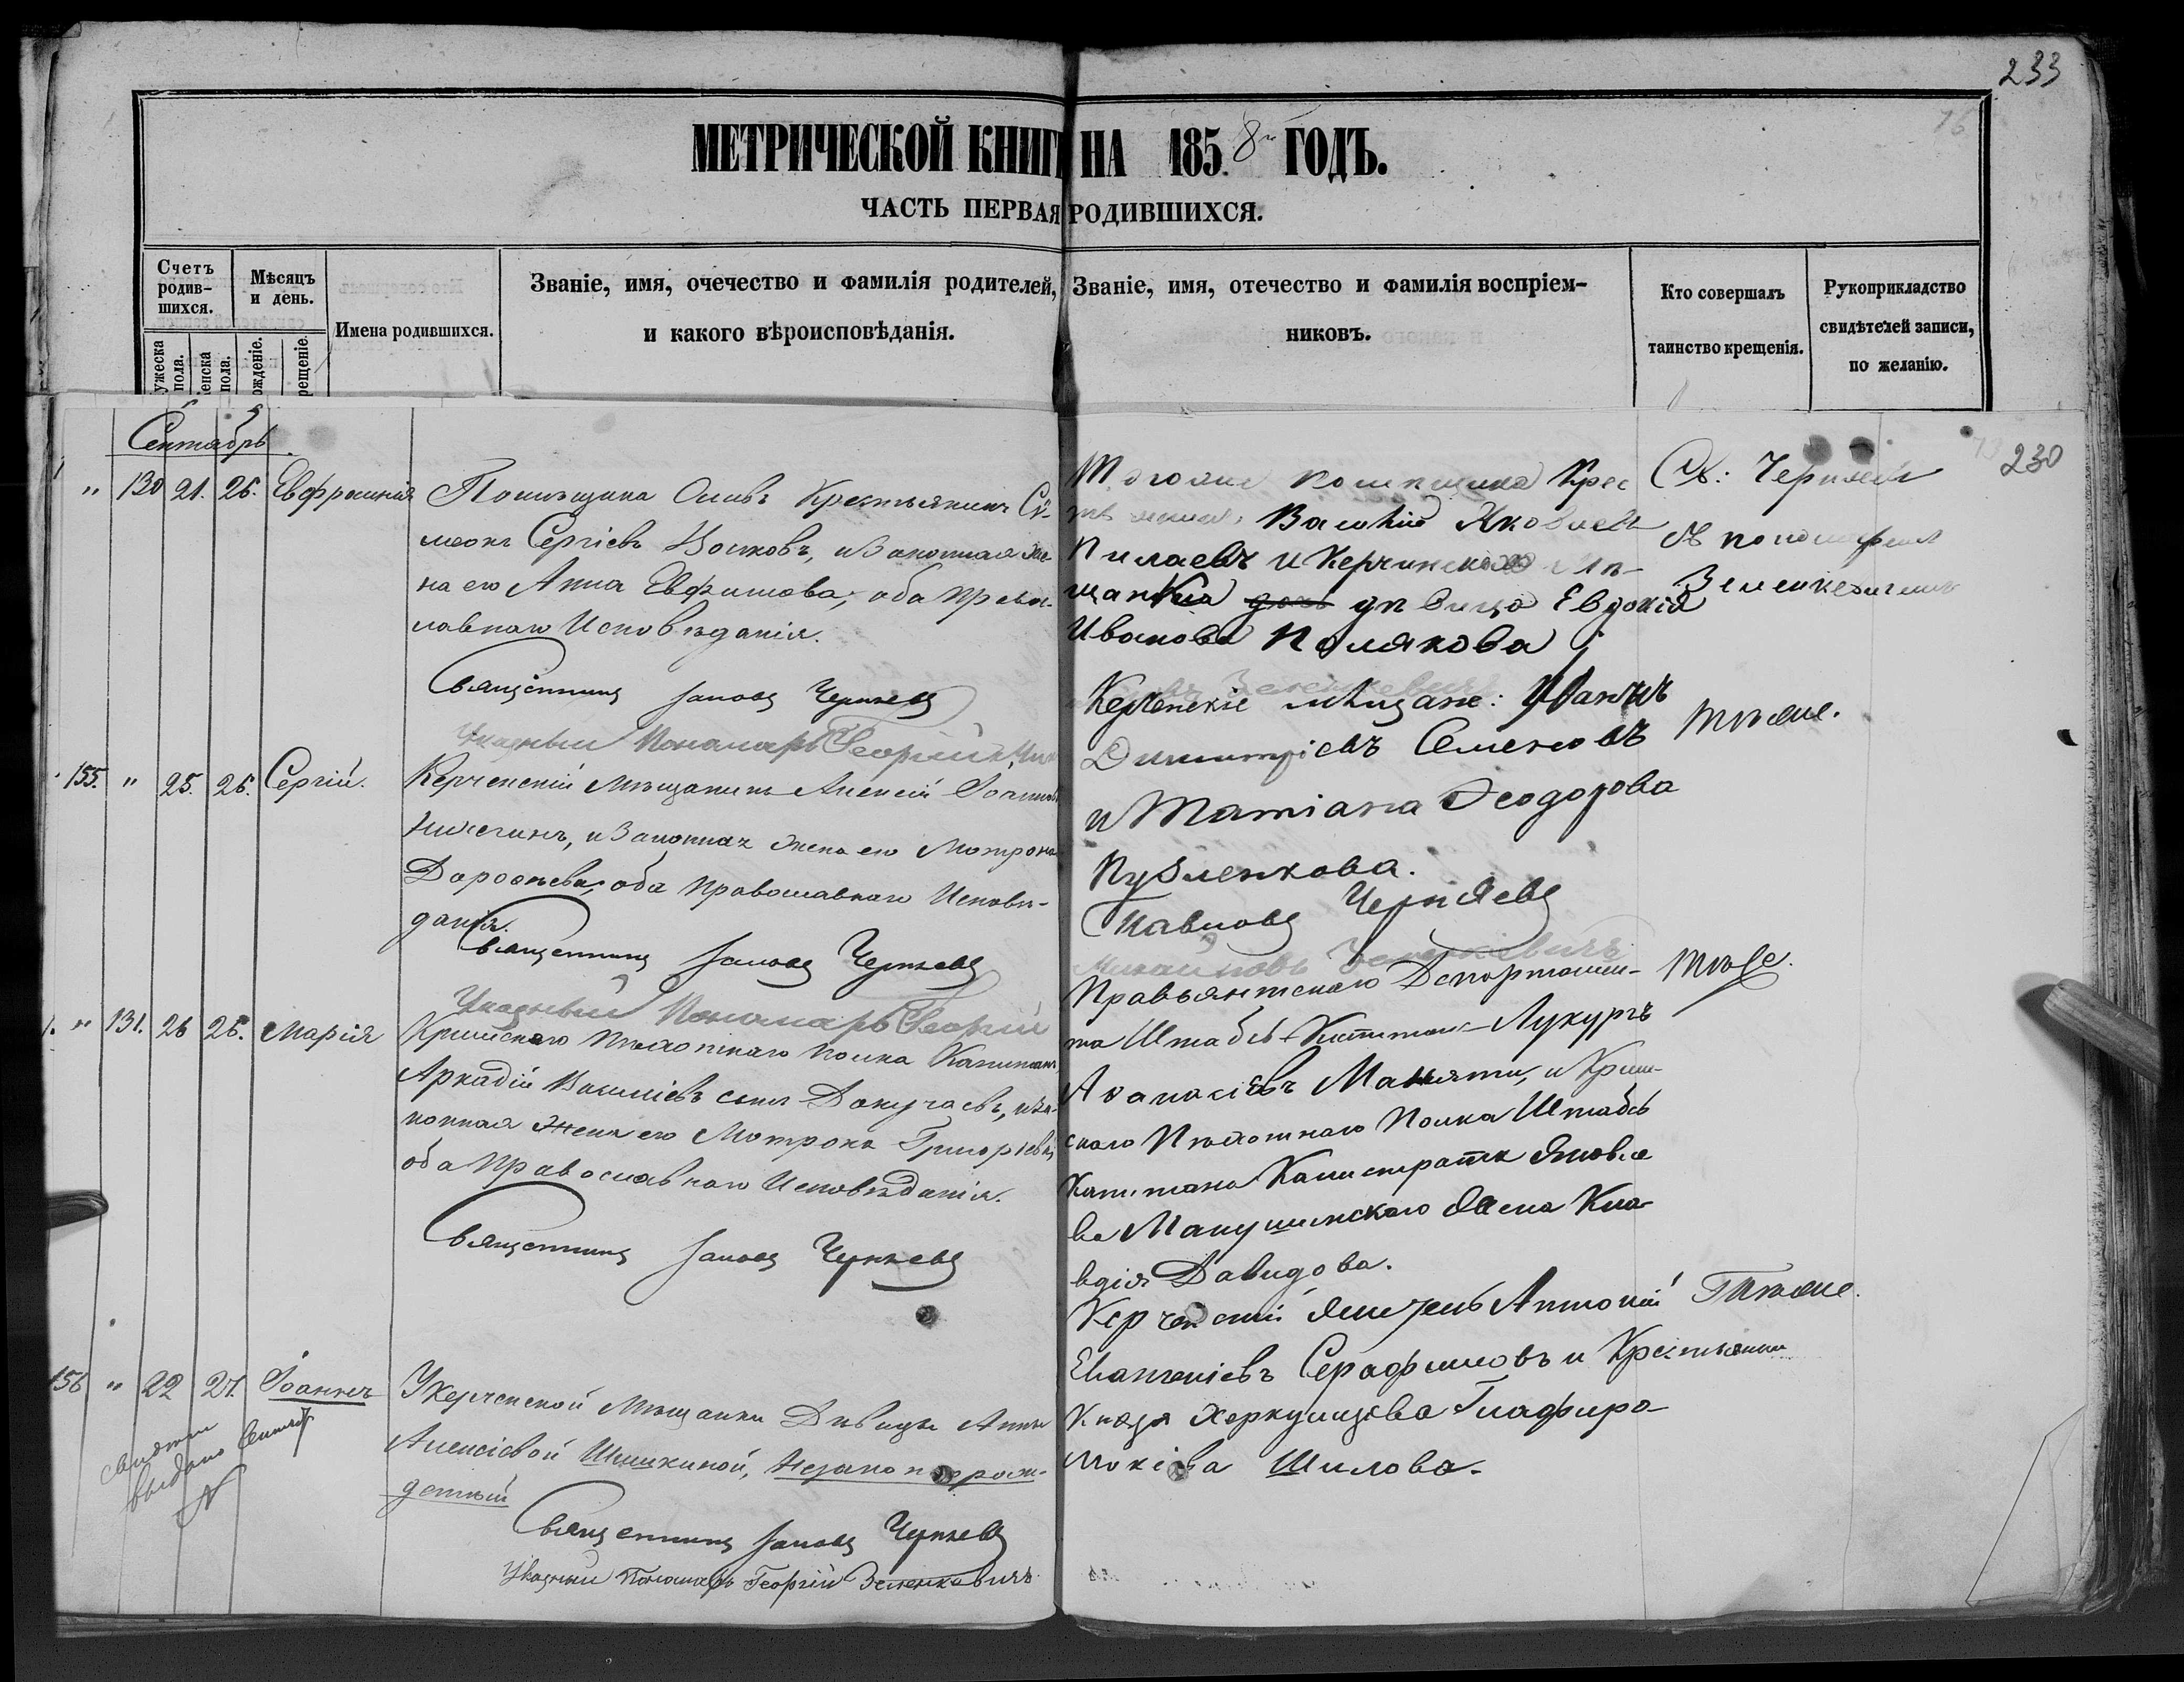 233
16
МЕТРИЧЕСКОЙ КНИГИ НА 1858й ГОДЪ.
ЧАСТЬ ПЕРВАЯ РОДИВШИХСЯ.
Счетъ родив-шихся.
ужеска пола.
енска пола.
Мѣсяцъ и день.
ожденіе.
рещеніе.
Имена родившихся.
Званіе, имя, очечество и фамилія родителей,
и какого вѣроисповѣданія.
Званіе, имя, отечество и фамилія воспріем-
никовъ.
Кто совершалъ
таинство крещенія.
Рукоприкладство
свидѣтелей записи,
по желанію.
Сентябрь
230
" 130 21. 26. Евфросинія
Помѣщика Оливъ Крестьянинъ Сѵ-
меонъ Сергіевъ Волковъ, и Законная же-
на его Анна Евфимова, оба Право-
лавнаго Исповѣданія.
Священникъ Іаковъ Черняевъ
Указный Пономарь Георгій
Тогоже помѣщика Крес
Василій Яковлевъ
Пилаевъ и Керчинская Мѣ-
щанка дѣвица Евдокія
Иванова Полякова
Св: Черняевъ
съ пономаремъ
Зеленкевичемъ
155. " 25. 26. Сергій.
Керченскій Мѣщанинъ Алексій
и Законная жена его Мотрона
Дороѳеева, оба Православнаго Исповѣ-
данія.
Священникъ Іаковъ Черняевъ
Указный Пономарь Георгій
Керченскіе мѣщане: Иванъ
Димитріевъ Семеновъ
и Татіана Ѳеодорова
Пузленкова.
Павловъ Черняевъ
Михайловъ Зеленкевичъ
Тѣже.
" 131. 26 26. Марія
Крымскаго Пѣхотнаго полка Капитанъ
Аркадій Василіевъ сынъ Докучаевъ, и За-
конная жена его Мотрона Григорьева
оба Православнаго Исповѣданія.
Священникъ Іаковъ Черняевъ
Правьянтскаго Департамен-
та Штабсъ-Капитанъ Лукургъ
Аѳанасіевъ Маняти, и Крым-
скаго Пѣхотнаго Полка Штабсъ
Капитана Калистрата Яковле
ва Манушинскаго Жена Кла-
вдія Давидова.
Тѣже.
156 " 22 27. Іоаннъ
У Керченской Мѣщанки Дѣвицы Анны
Алексіевой Шишкиной, Незаконнорож-
денный
Священникъ Іаковъ Черняевъ
Указный Пономарь Георгій Зеленкевичъ
Керченскій Антоній
Серафимовъ и Крестьянин
Князя Херхулидзева Глафира
Мокіева Шилова.
Тѣже.
выдано